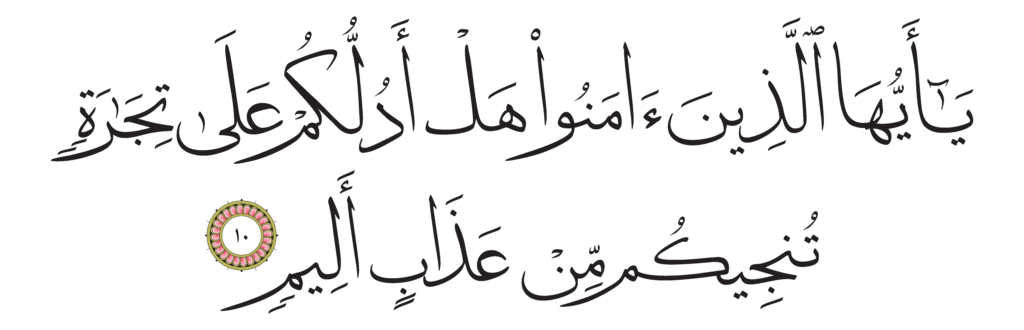 يَـٰٓأَيُّهَا ٱلَّذِينَ ءَامَنُوا۟ هَلْ أَدُلُّكُمْ عَلَىٰ تِجَـٰرَةٍۢ
تُنجِيكُم مِّنْ عَذَابٍ أَلِيمٍۢ ١٠